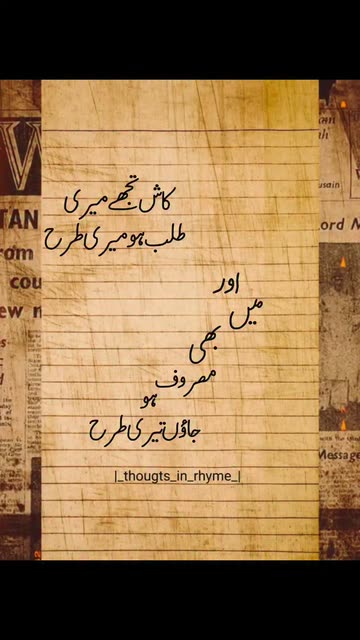 کاش تجھے میری
طلب ہو میری طرح
اور
میں
بھی
مصروف
ہو
جاؤں تیری طرح
|_thougts_in_rhyme_|
TAN
rom
cou
ew
usain
ord M
Message